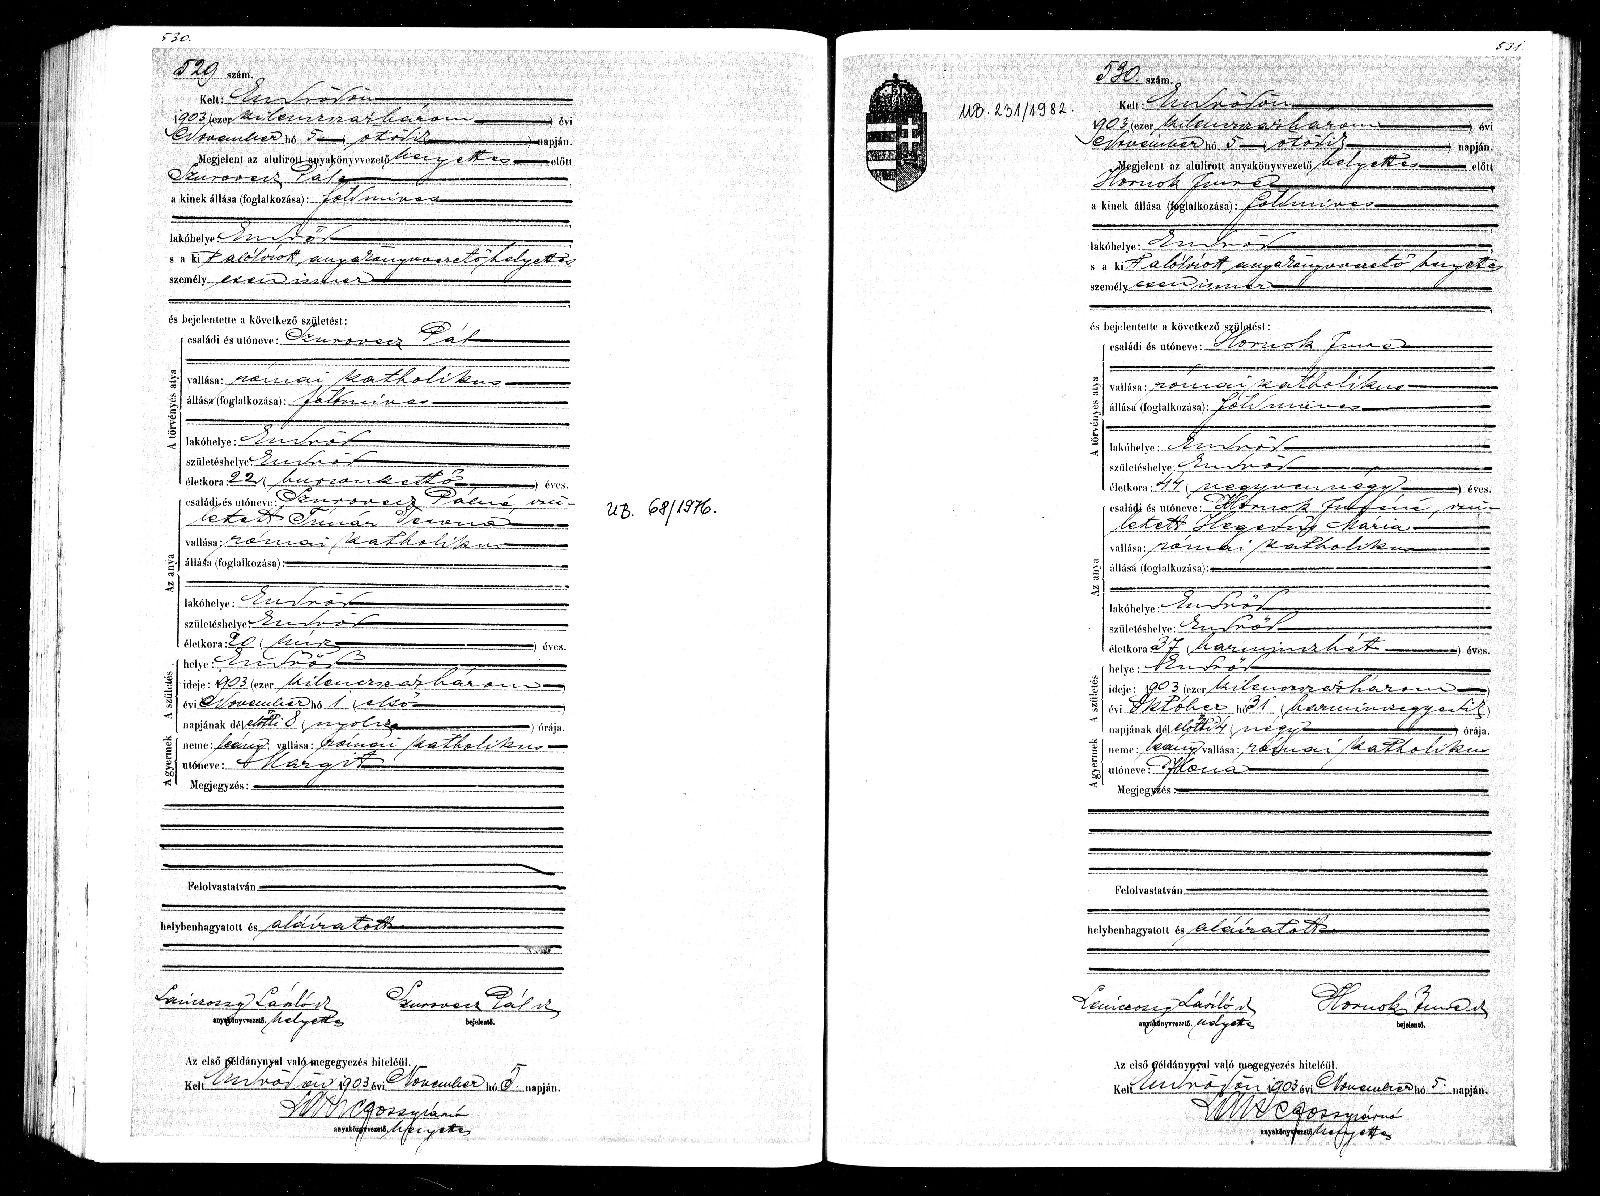 530.
529 szám.
Kelt: Endrődön
1903 (ezer kilenczszázhárom) évi
November hó 5 (ötödik) napján.
Megjelent az alulirott anyakönyvvezető helyettes előtt
Szurovecz Pál
a kinek állása (foglalkozása): földmives
lakóhelye Endrőd
s a kit alólírott anyakönyvvezető helyettes
személyesen ismer
és bejelentette a következő születést:
A törvényes atya
családi és utóneve: Szurovecz Pál
vallása: római katholikus
állása (foglalkozása): földmives
lakóhelye: Endrőd
születéshelye: Endrőd
életkora: 22 (huszonkettő) éves.
Az anya
családi és utóneve: Szurovecz Pálné, szü-
letett Timár Verona
vallása: római katholikus
állása (foglalkozása):
lakóhelye: Endrőd
születéshelye Endrőd
életkora: 20 (húsz) éves.
A születés
helye: Endrőd
ideje: 1903 (ezer kilenczszázhárom)
évi November hó 1 (első)
napjának dél előtti 8 (nyolcz) órája.
A gyermek
neme: leány vallása: római katholikus
utóneve: Margit
Megjegyzés:
Felolvastatván
helybenhagyatott és aláíratott
László Szurovecz Pál
anyakönyvvezető. helyettes bejelentő.
Az első példánynyal való megegyezés hiteléül.
Kelt Endrődön 1903 évi November hó 5 napján.
anyakönyvvezető. helyettes
UB. 68/1976.
531.
530. szám.
UB. 231/1982.
Kelt: Endrődön
1903 (ezer kilenczszázhárom) évi
November hó 5 (ötödik) napján.
Megjelent az alulirott anyakönyvvezető helyettes előtt
Hornok Imre
a kinek állása (foglalkozása): földmives
lakóhelye: Endrőd
s a kit alólírott anyakönyvvezető helyettes
személyesen ismer
és bejelentette a következő születést:
A törvényes atya
családi és utóneve: Hornok Imre
vallása: római katholikus
állása (foglalkozása): földmives
lakóhelye: Endrőd
születéshelye: Endrőd
életkora: 44 (negyvennégy) éves.
Az anya
családi és utóneve: Hornok Imréné, szü-
letett Hegedüs Mária
vallása: római katholikus
állása (foglalkozása):
lakóhelye: Endrőd
születéshelye: Endrőd
életkora: 37 (harminczhét) éves.
A születés
helye: Endrőd
ideje: 1903 (ezer kilenczszázhárom)
évi Október hó 31 (harminczegyedik)
napjának dél előtti 4 (négy) órája.
A gyermek
neme: leány vallása: római katholikus
utóneve: Ilona
Megjegyzés:
Felolvastatván
helybenhagyatott és aláíratott
László Hornok Imre
anyakönyvvezető. helyettes bejelentő.
Az első példánynyal való megegyezés hiteléül.
Kelt Endrődön 1903 évi November hó 5. napján.
anyakönyvvezető. helyettes